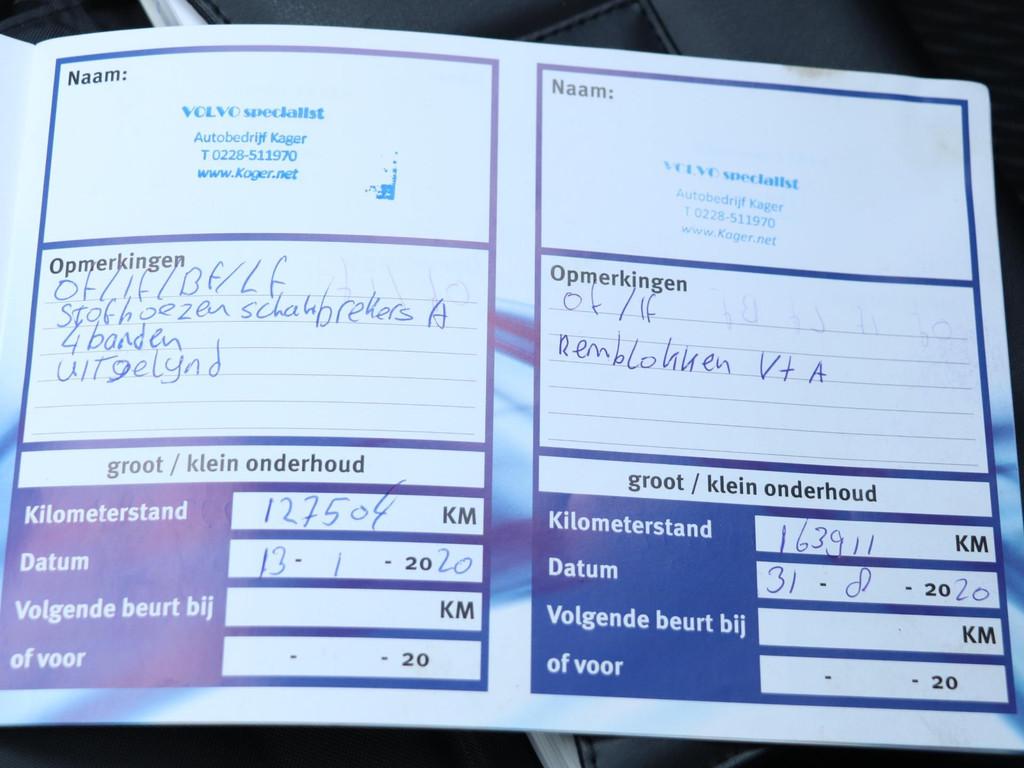 Naam:
VOLVO specialist
Autobedrijf Kager
T 0228-511970
www.Kager.net
Opmerkingen
Of/If/Bf/Lf
Stofhoezen schakbrekers A
4 banden
uitgelynd
groot / klein onderhoud
Kilometerstand 127504 KM
Datum 13 - 1 - 2020
Volgende beurt bij KM
of voor - - 20
Naam:
VOLVO specialist
Autobedrijf Kager
T 0228-511970
www.Kager.net
Opmerkingen
Of/If
Remblokken V+A
groot / klein onderhoud
Kilometerstand 163911 KM
Datum 31 - 8 - 2020
Volgende beurt bij KM
of voor - - 20